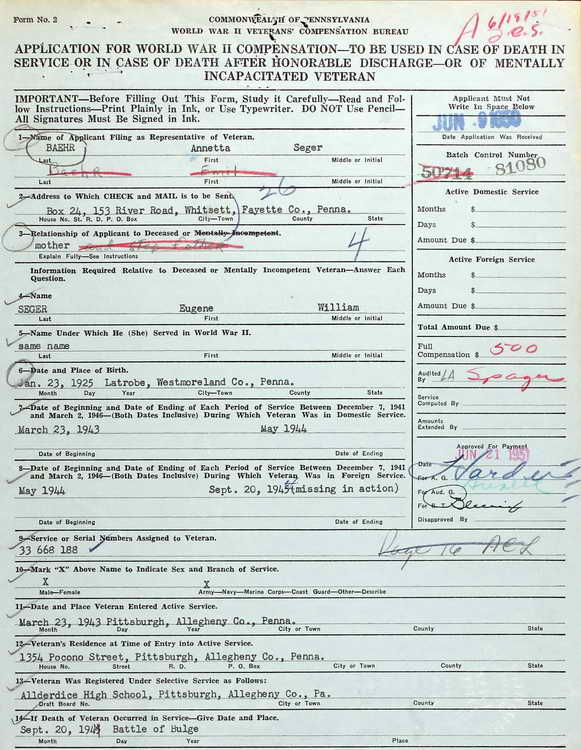 Form No. 2
COMMONWEALTH OF PENNSYLVANIA
WORLD WAR II VETERANS' COMPENSATION BUREAU
APPLICATION FOR WORLD WAR II COMPENSATION—TO BE USED IN CASE OF DEATH IN
SERVICE OR IN CASE OF DEATH AFTER HONORABLE DISCHARGE—OR OF MENTALLY
INCAPACITATED VETERAN
IMPORTANT—Before Filling Out This Form, Study it Carefully—Read and Fol-
low Instructions—Print Plainly in Ink, or Use Typewriter. DO NOT Use Pencil—
All Signatures Must Be Signed in Ink.
1—Name of Applicant Filing as Representative of Veteran.
BAEHR Annetta Seger
Last First Middle or Initial
Baehr Emil
Last First Middle or Initial
2—Address to Which CHECK and MAIL is to be Sent.
26
Box 24, 153 River Road, Whitsett, Fayette Co., Penna.
House No. St. R. D. P. O. Box City—Town County State
3—Relationship of Applicant to Deceased or Mentally Incompetent.
mother and step father 4
Explain Fully—See Instructions
Information Required Relative to Deceased or Mentally Incompetent Veteran—Answer Each
Question.
4—Name
SEGER Eugene William
Last First Middle or Initial
5—Name Under Which He (She) Served in World War II.
same name
Last First Middle or Initial
6—Date and Place of Birth.
Jan. 23, 1925 Latrobe, Westmoreland Co., Penna.
Month Day Year City—Town County State
7—Date of Beginning and Date of Ending of Each Period of Service Between December 7, 1941
and March 2, 1946—(Both Dates Inclusive) During Which Veteran Was in Domestic Service.
March 23, 1943 May 1944
Date of Beginning Date of Ending
8—Date of Beginning and Date of Ending of Each Period of Service Between December 7, 1941
and March 2, 1946—(Both Dates Inclusive) During Which Veteran Was in Foreign Service.
May 1944 Sept. 20, 1944 (missing in action)
Date of Beginning Date of Ending
9—Service or Serial Numbers Assigned to Veteran.
33 668 188
10—Mark "X" Above Name to Indicate Sex and Branch of Service.
X X
Male—Female Army—Navy—Marine Corps—Coast Guard—Other—Describe
11—Date and Place Veteran Entered Active Service.
March 23, 1943 Pittsburgh, Allegheny Co., Penna.
Month Day Year City or Town County State
12—Veteran's Residence at Time of Entry into Active Service.
1354 Pocono Street, Pittsburgh, Allegheny Co., Penna.
House No. Street R. D. P. O. Box City or Town County State
13—Veteran Was Registered Under Selective Service as Follows:
Allderdice High School, Pittsburgh, Allegheny Co., Pa.
Draft Board No. City or Town County State
14—If Death of Veteran Occurred in Service—Give Date and Place.
Sept. 20, 1944 Battle of Bulge
Month Day Year Place
A 6/19/51
Applicant Must Not
Write In Space Below
JUN 9 1950
Date Application Was Received
Batch Control Number
50714 81080
Active Domestic Service
Months $
Days $
Amount Due $
Active Foreign Service
Months $
Days $
Amount Due $
Total Amount Due $
Full
Compensation $ 500
Audited
By LA
Service
Computed By
Amounts
Extended By
Approved For Payment
JUN 21 1951
Date
For A. G.
For Aud. G.
For S. T.
Disapproved By
Page 16